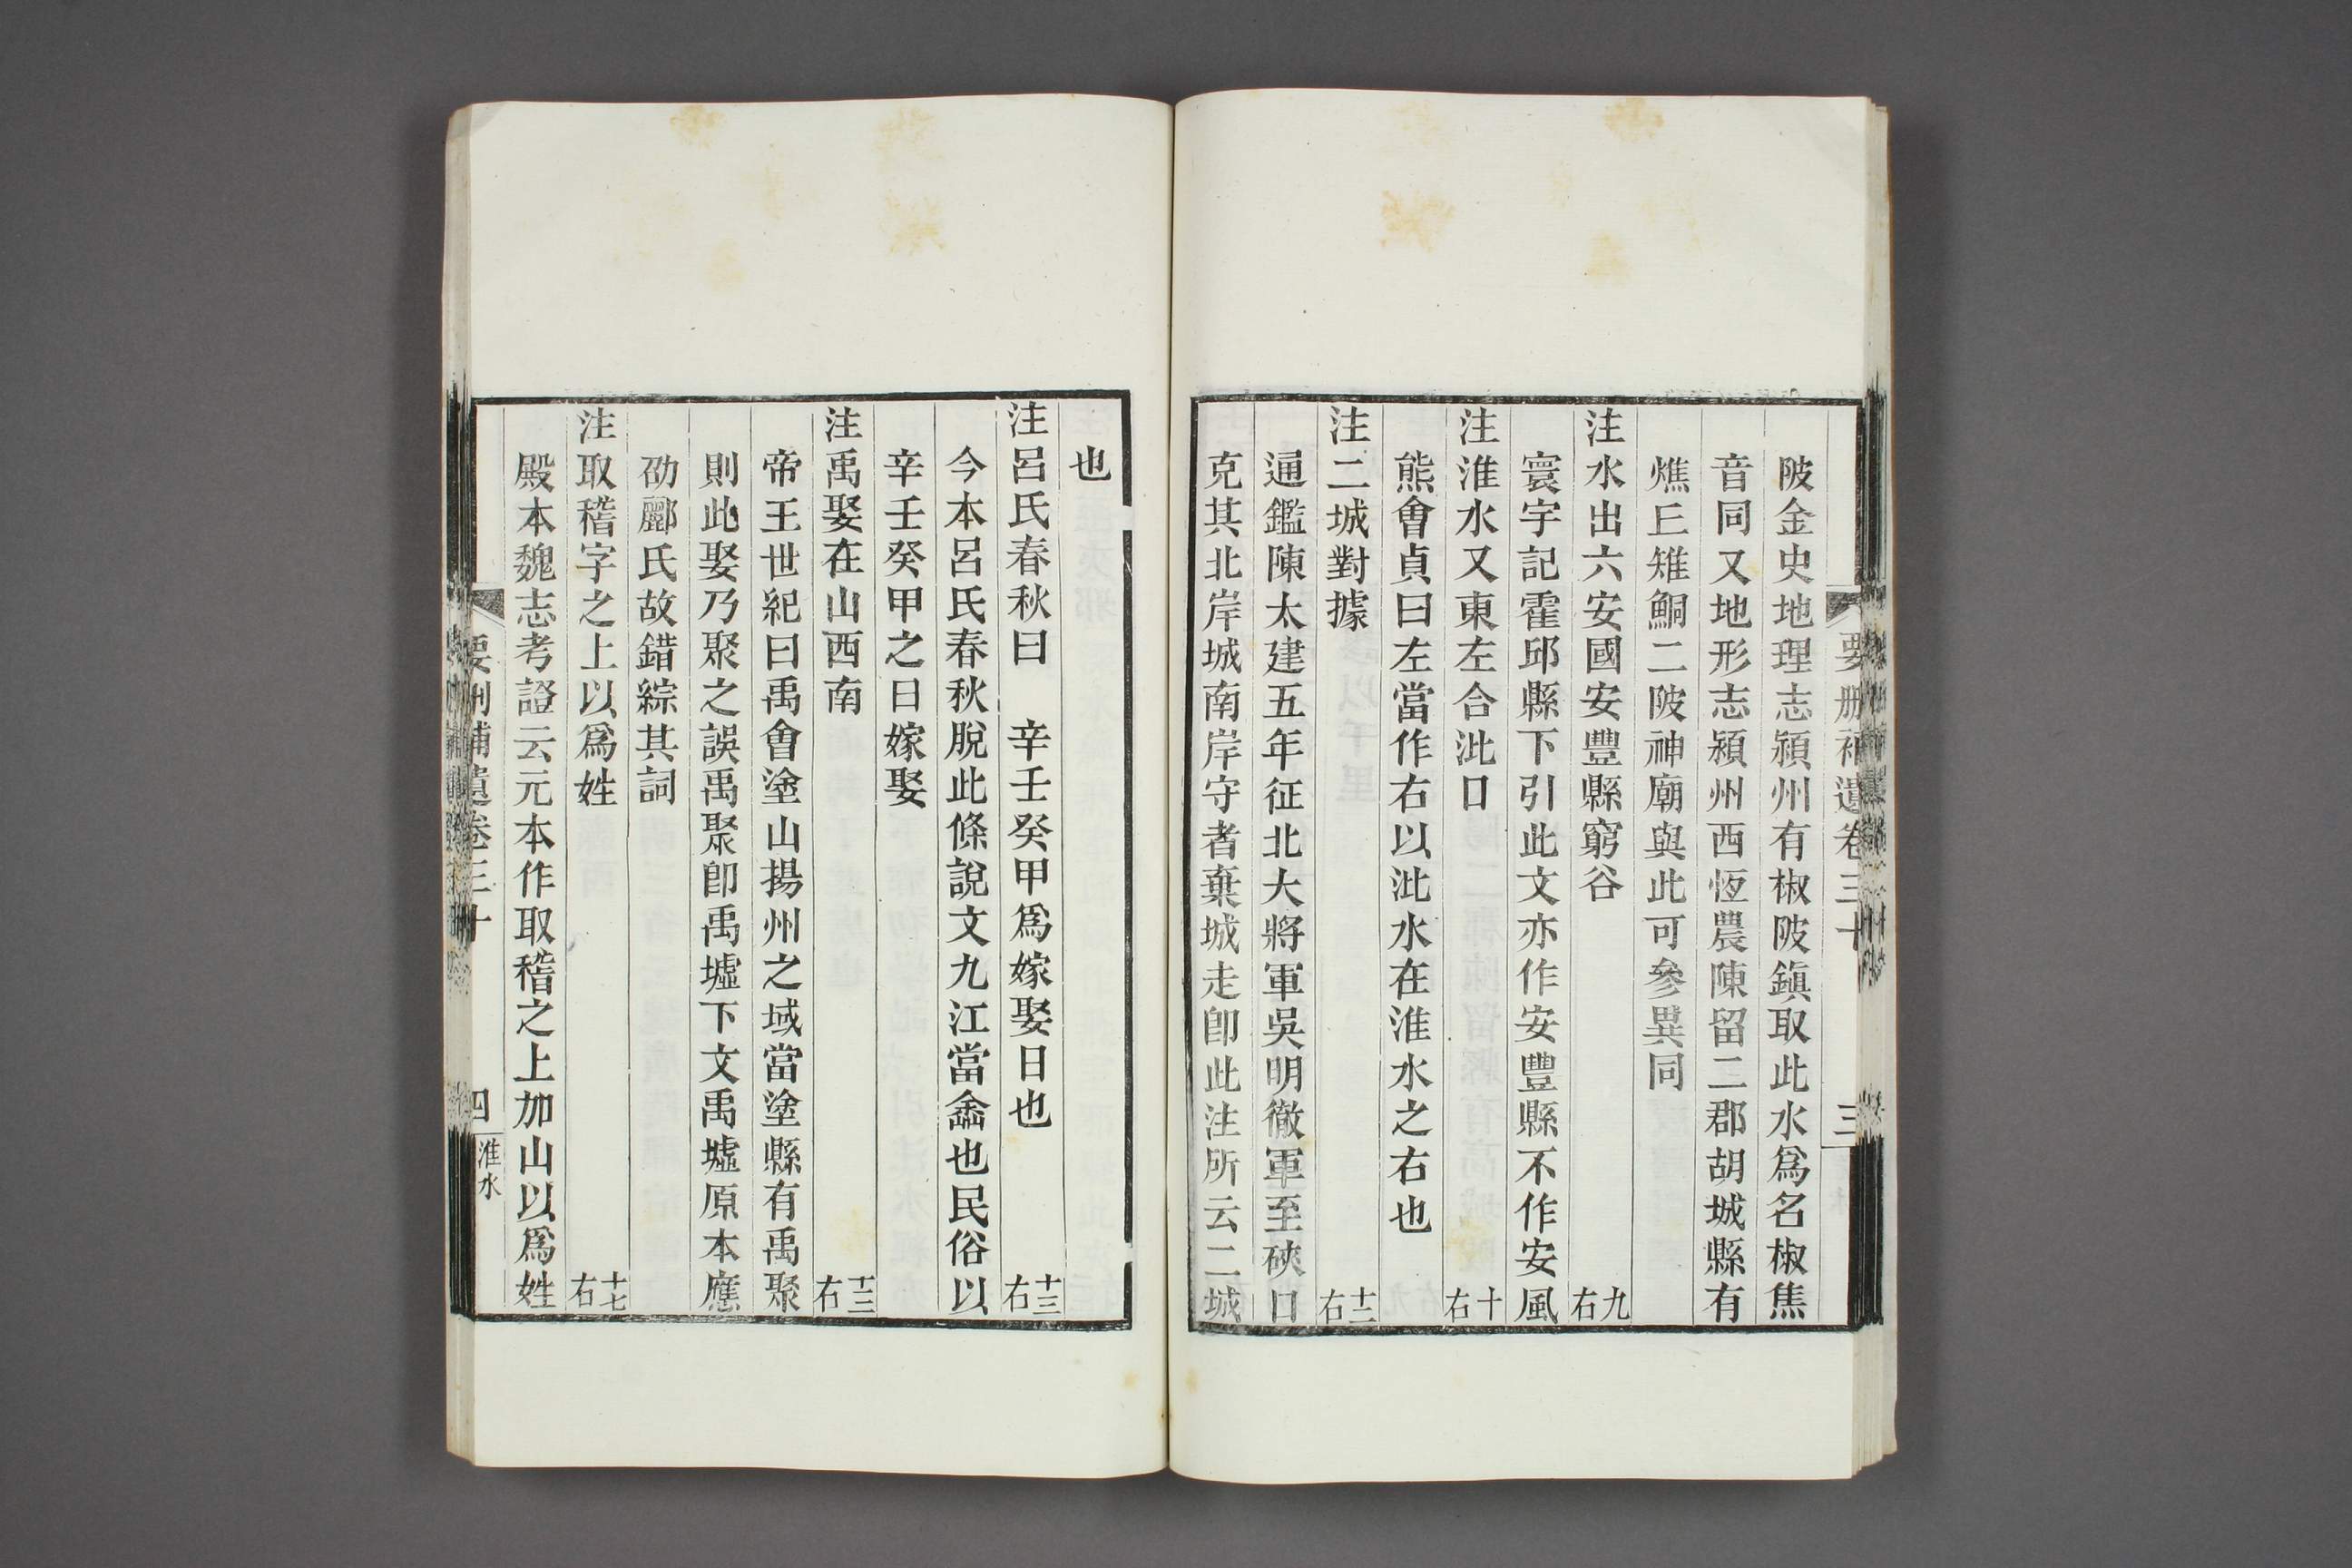 要刪補遺卷三十 三
陂金史地理志潁州有椒陂鎮取此水爲名椒焦
音同又地形志潁州西恆農陳留二郡胡城縣有
燋丘雉鮦二陂神廟與此可參異同
注水出六安國安豐縣窮谷 九右
寰宇記霍邱縣下引此文亦作安豐縣不作安風
注淮水又東左合沘口 十右
熊會貞曰左當作右以沘水在淮水之右也
注二城對據 十二右
通鑑陳太建五年征北大將軍吳明徹軍至硤口
克其北岸城南岸守者棄城走卽此注所云二城
也
注呂氏春秋曰 辛壬癸甲爲嫁娶日也 十三右
今本呂氏春秋脫此條說文九江當嵞也民俗以
辛壬癸甲之日嫁娶
注禹娶在山西南 十三右
帝王世紀曰禹會塗山揚州之域當塗縣有禹聚
則此娶乃聚之誤禹聚卽禹墟下文禹墟原本應
劭酈氏故錯綜其詞
注取稽字之上以爲姓 十七右
殿本魏志考證云元本作取稽之上加山以爲姓
要刪補遺卷三十 四 淮水